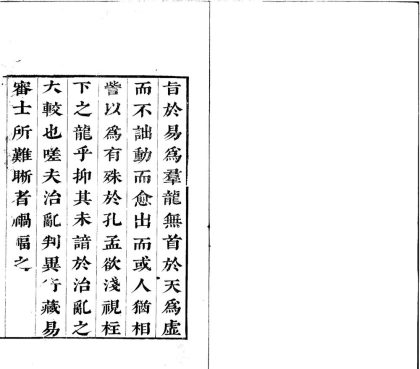 旨於易為羣龍無首於天為虛
而不詘動而愈出而或人猶相
訾以為有殊於孔孟欲淺視柱
下之龍乎抑其未諳於治亂之
大較也嗟夫治亂判異行藏易
審士所難晰者禍福之